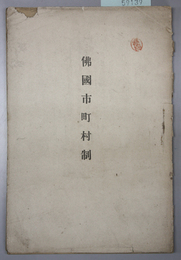 佛國市町村制